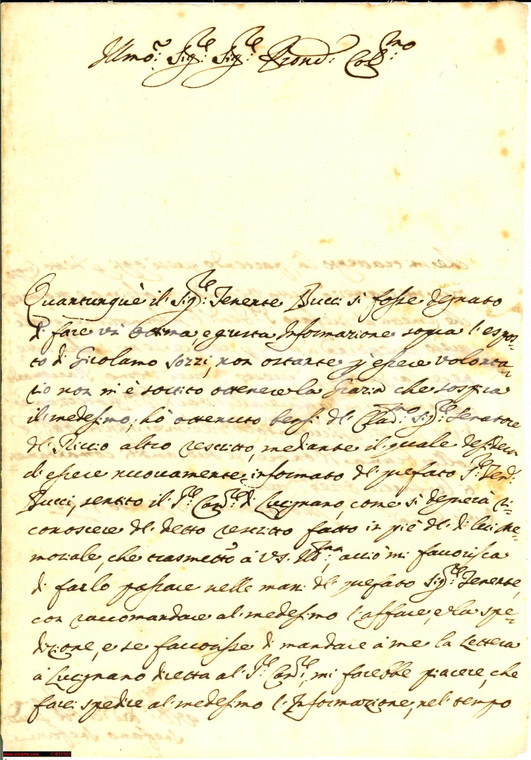 Illmo: Sig:re Sig:re Prond: Col:mo
Quantunque il Sig:re Tenente Bucci si fosse degnato
di fare un ottima, e giusta Informazione sopra l'espos-
to di Girolamo Sozzi, non ostante essere volonta-
rio non m'è sortito ottenere la Grazia che sospira
il medesimo; hò ottenuto bensi dal Sig:re Senatore
del Riccio altro rescritto, mediante il quale
di essere nuovamente informato dal prefato
Bucci, sentito il di Lucignano, come si degnerà ri-
conoscere dal detto rescritto fatto in piè del di lui Me-
moriale, che trasmetto à VS. acciò mi favorisca
di farlo passare nelle mani del prefato Sig:re Tenente,
con raccomandare al medesimo l'affare, e la spe-
dizione, e se favorisse di mandare à me la Lettera
à Lucignano diretta al mi farebbe piacere, che
farei spedire al medesimo l'Informazione, nel tempo